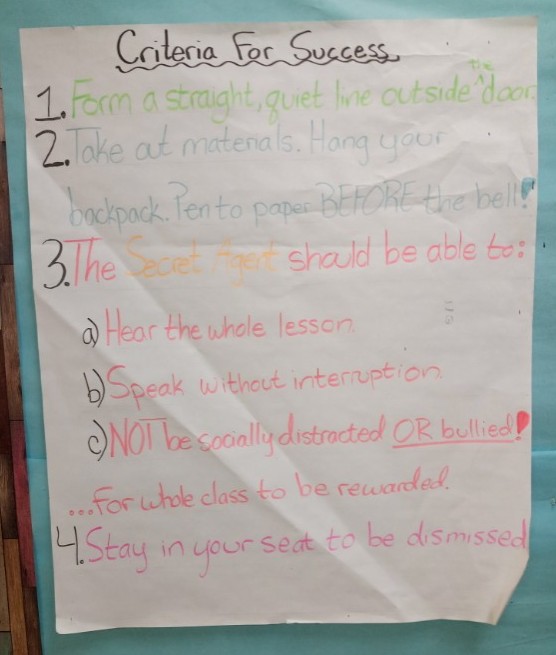 Criteria For Success
1. Form a straight, quiet line outside the door.
2. Take out materials. Hang your
backpack. Pen to paper BEFORE the bell!
3. The Secret Agent should be able to:
a) Hear the whole lesson.
b) Speak without interruption.
c) NOT be socially distracted OR bullied!
...for whole class to be rewarded.
4. Stay in your seat to be dismissed